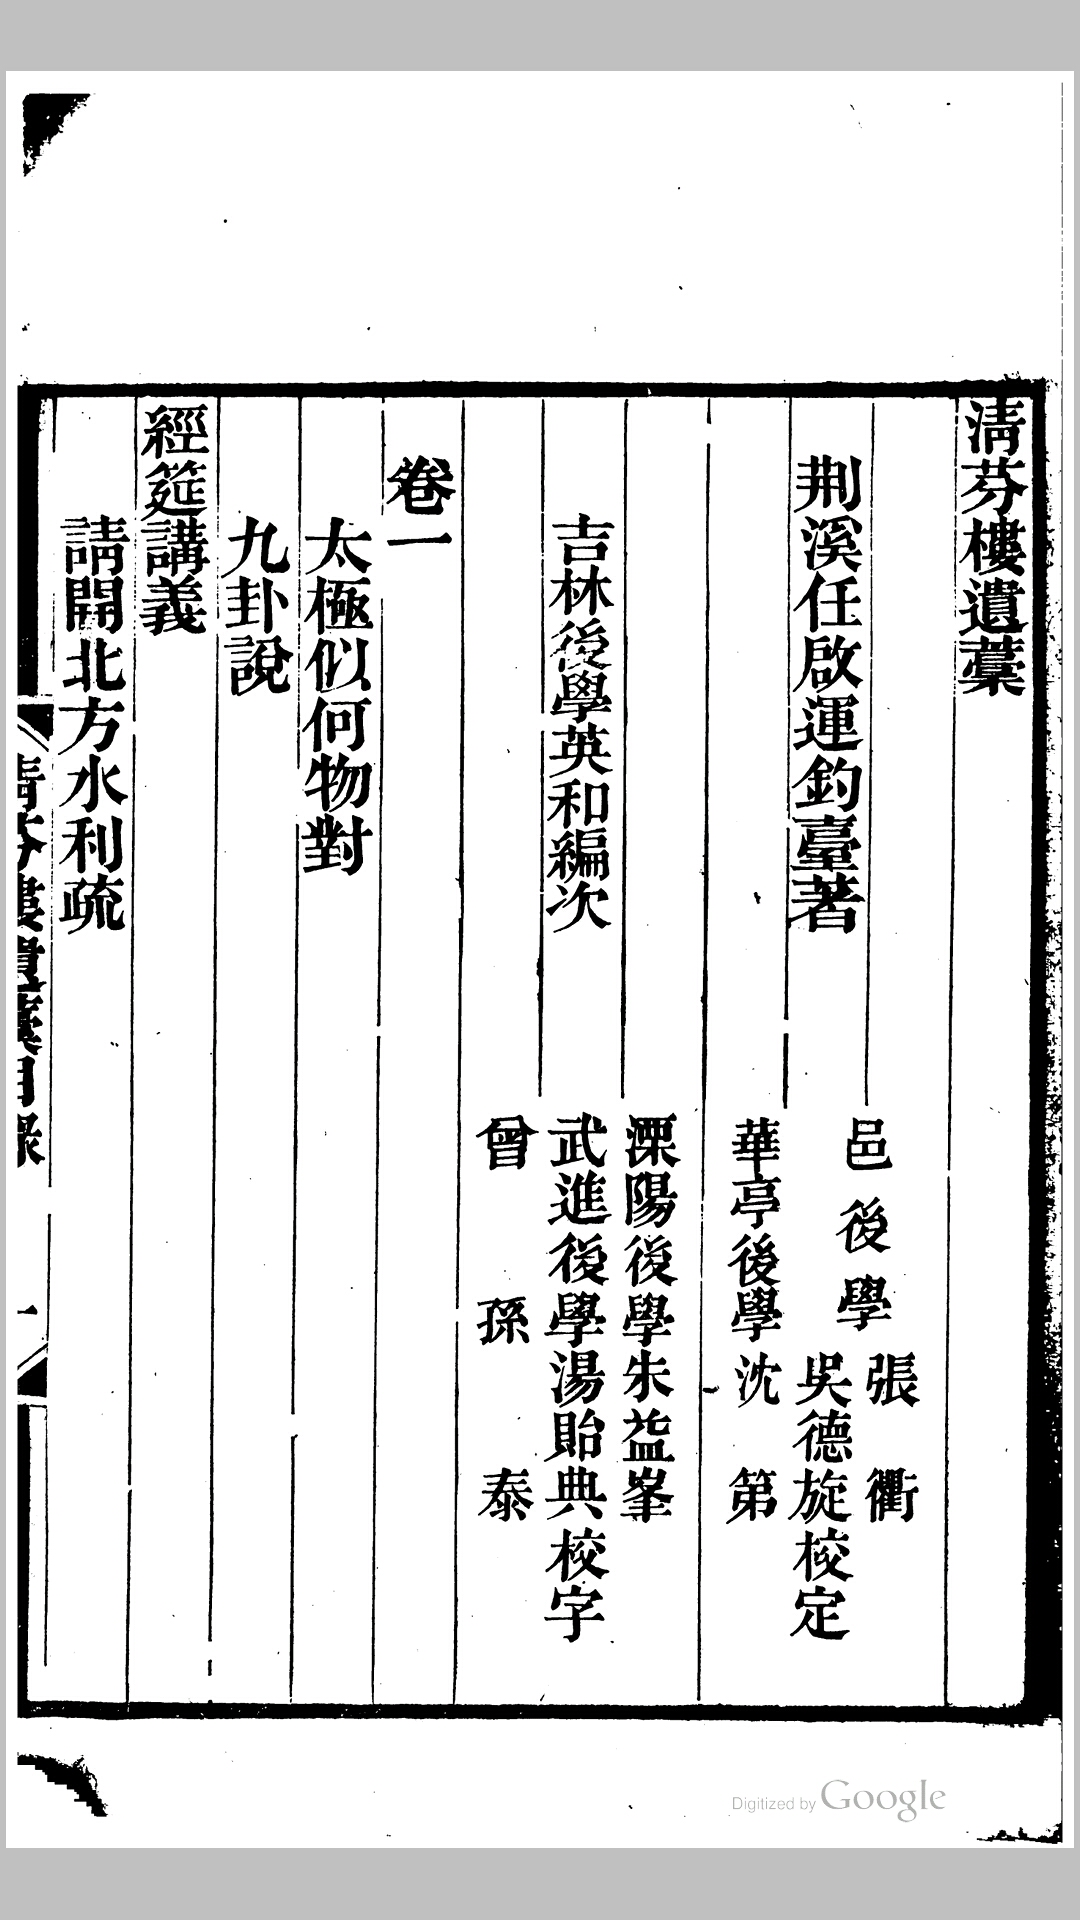 清芬樓遺藁
荆溪任啟運釣臺著
邑後學張衢
吳德旋校定
華亭後學沈第
吉林後學英和編次
溧陽後學朱益峯
武進後學湯貽典校字
曾孫泰
卷一
太極似何物對
九卦說
經筵講義
請開北方水利疏
清芬樓遺藁目錄
一
Digitized by Google